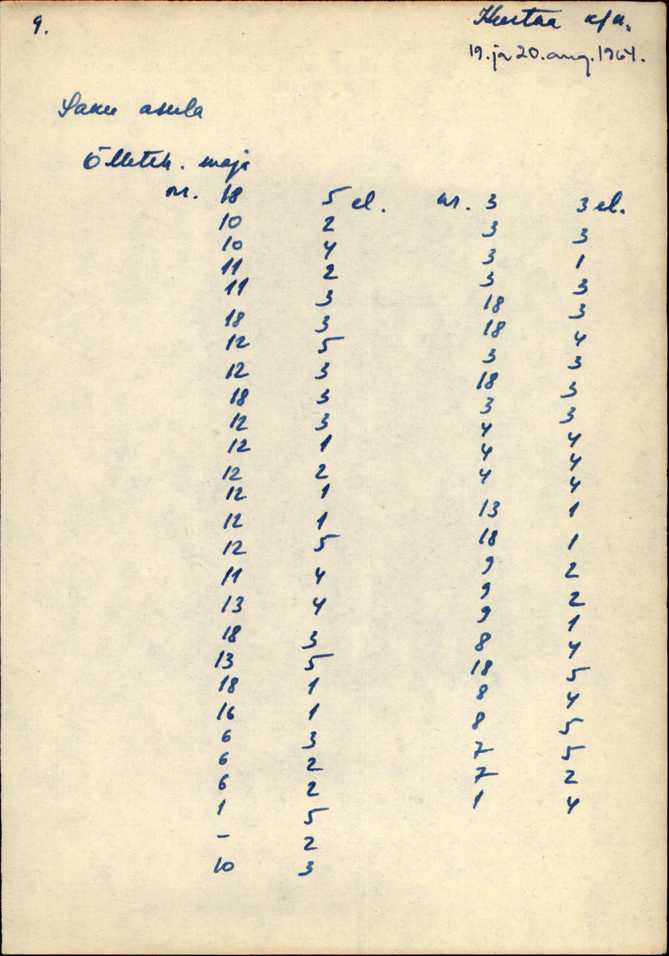 9.
Kurtna k/n.
19. ja 20. aug. 1964.
Saku asula
Õlleteh. maja
nr. 18 5 el.
10 2
10 4
11 2
11 3
18 3
12 5
12 3
18 3
12 3
12 1
12 2
12 1
12 1
12 5
11 4
13 4
18 3
13 5
18 1
16 1
6 3
6 2
6 2
1 5
- 2
10 3
nr. 3 3 el.
3 3
3 1
3 3
18 3
18 4
3 3
18 3
3 3
4 4
4 4
4 4
13 1
18 1
9 2
9 2
9 1
8 4
18 5
8 4
8 5
7 5
7 2
1 4